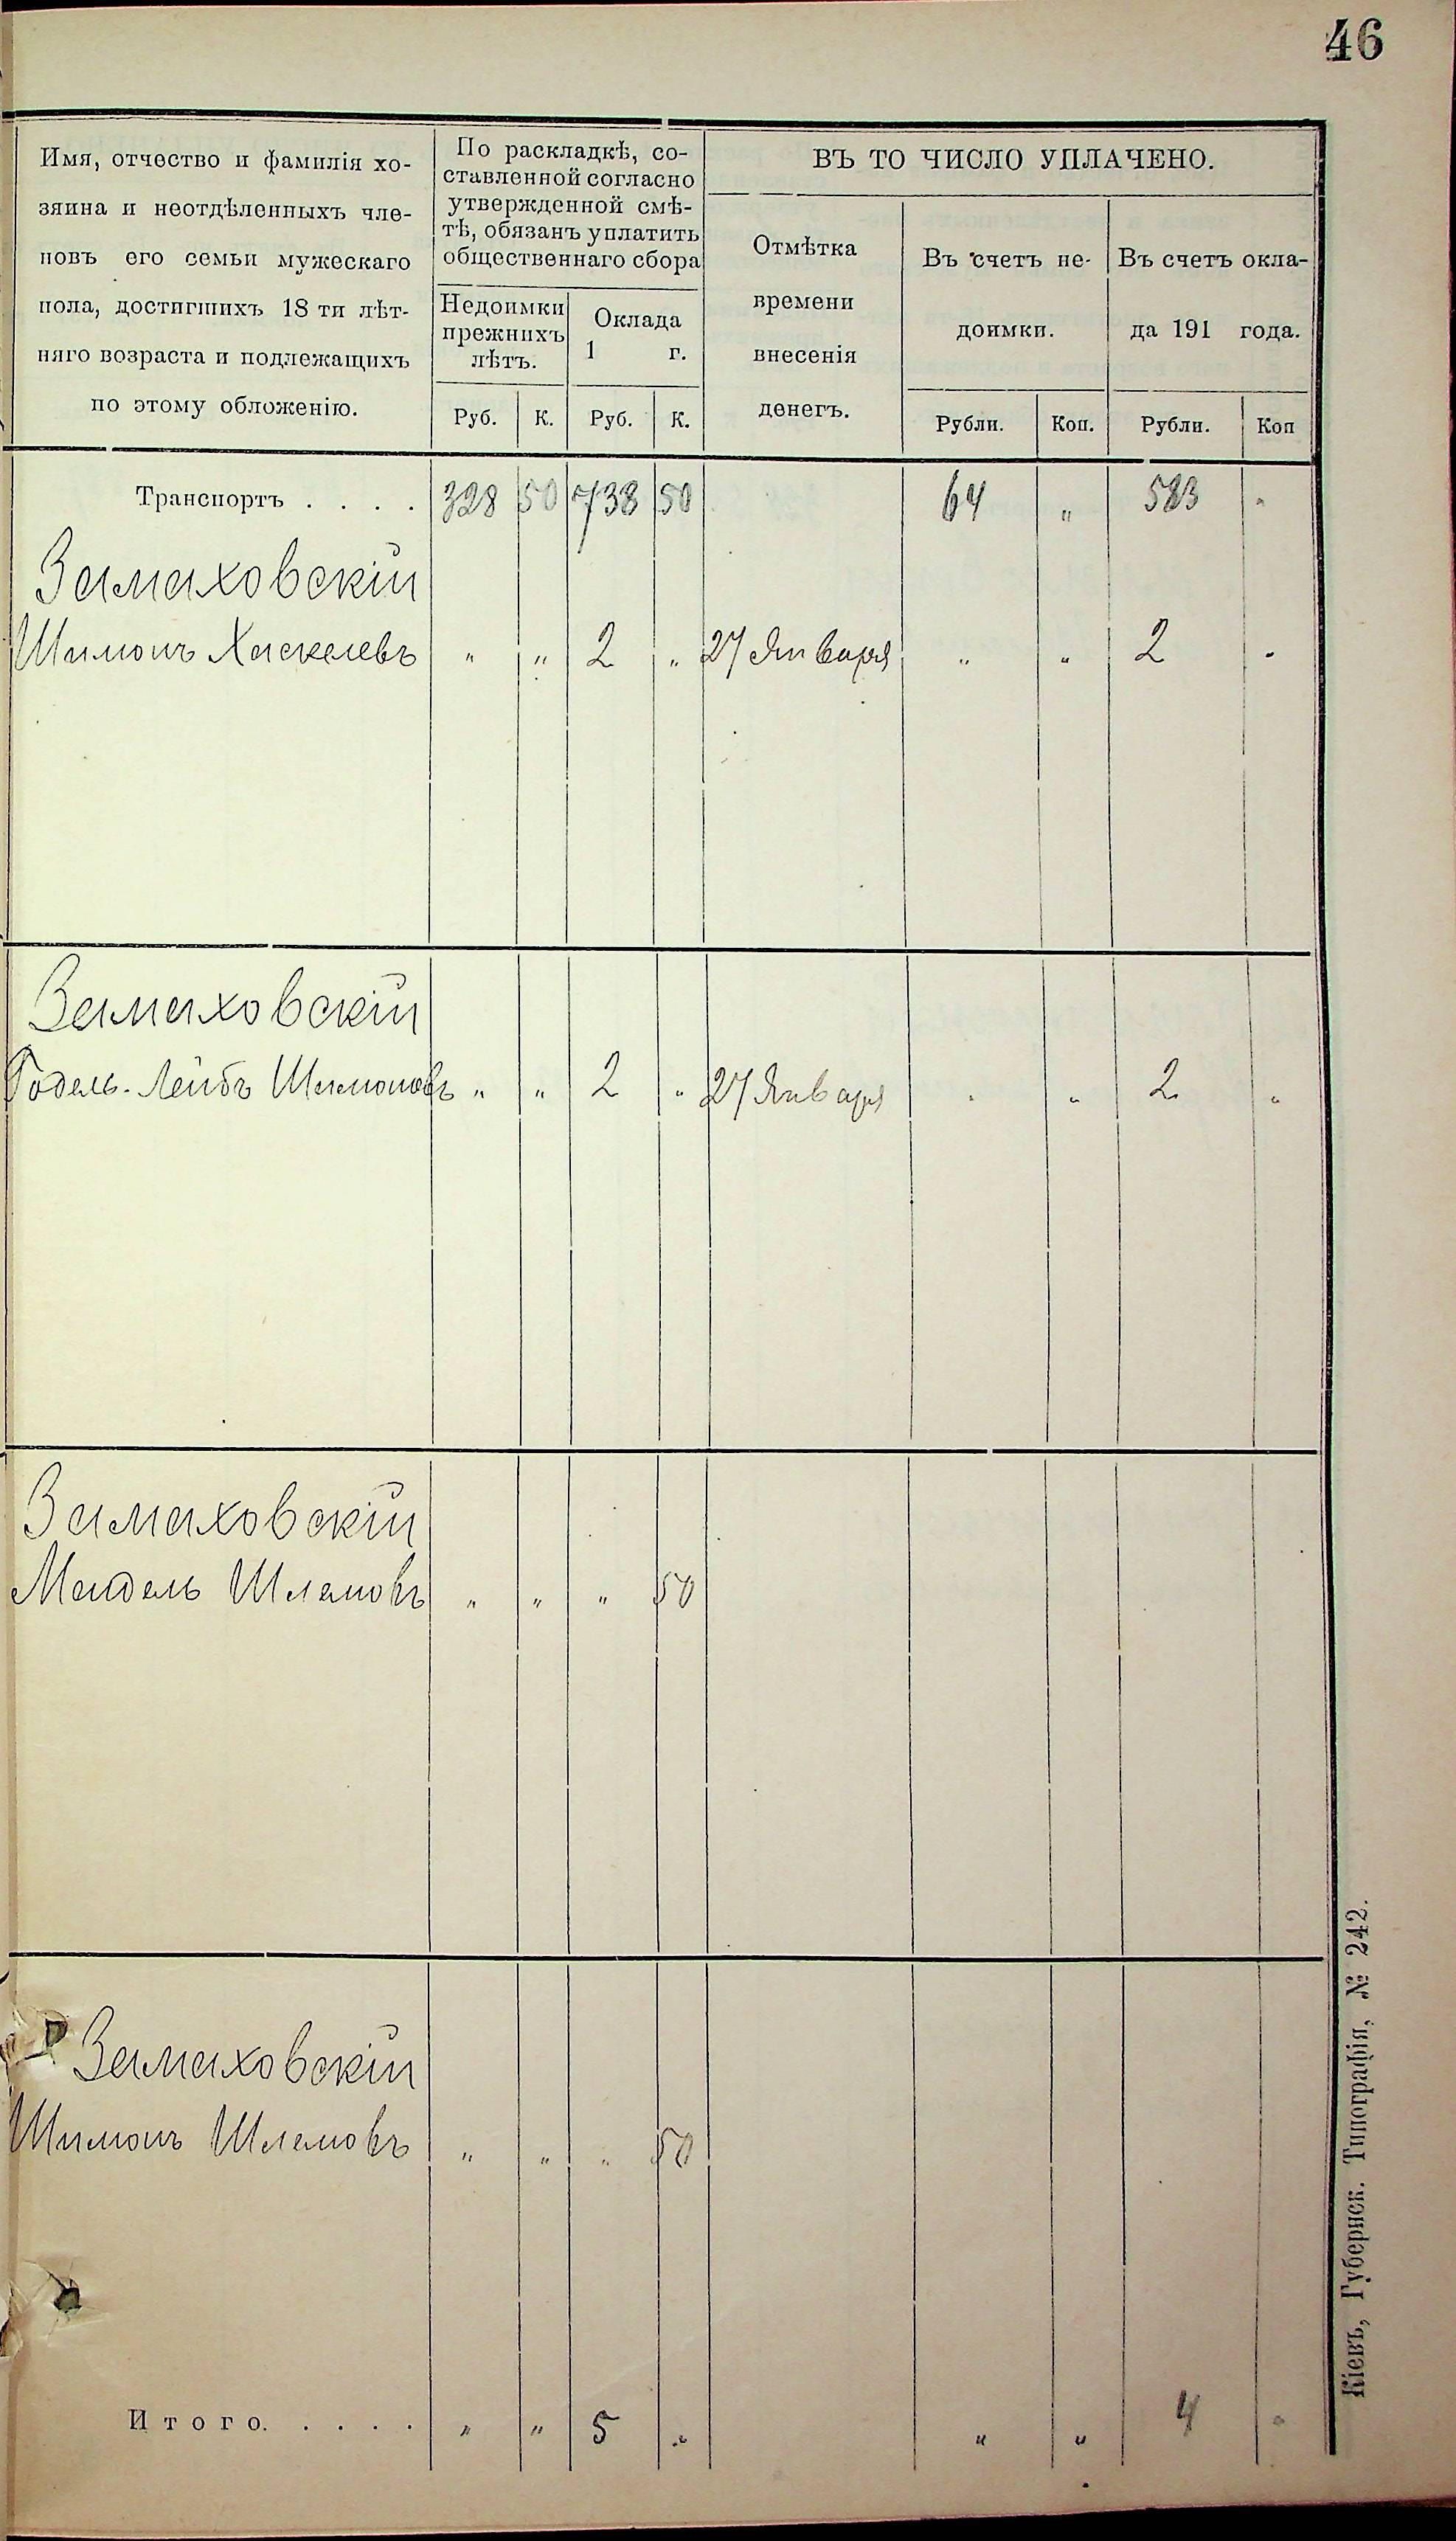 46
Имя, отчество и фамилія хо-
зяина и неотдѣленныхъ чле-
новъ его семьи мужескаго
пола, достигшихъ 18 ти лѣт-
няго возраста и подлежащихъ
по этому обложенію.
По раскладкѣ, со-
ставленной согласно
утвержденной смѣ-
тѣ, обязанъ уплатить
общественнаго сбора
Недоимки
прежнихъ
лѣтъ.
Оклада
1 г.
Руб. К. Руб. К.
ВЪ ТО ЧИСЛО УПЛАЧЕНО.
Отмѣтка
времени
внесенія
денегъ.
Въ счетъ не-
доимки.
Рубли. Коп.
Въ счетъ окла-
да 191 года.
Рубли. Коп
Транспортъ . . . . 328 50 738 50 64 „ 583 „
Замаховскій
Шимонъ Хаскелевъ „ „ 2 „ 27 Января „ „ 2 „
Замаховскій
Годель-Лейбъ Шимоновъ „ „ 2 „ 27 Января „ „ 2 „
Замаховскій
Мандель Шлемовъ „ „ „ 50
Замаховскій
Шимонъ Шлемовъ „ „ „ 50
Итого. . . . . „ „ 5 „ „ „ 4 „
Кіевъ, Губернск. Типографія, № 242.